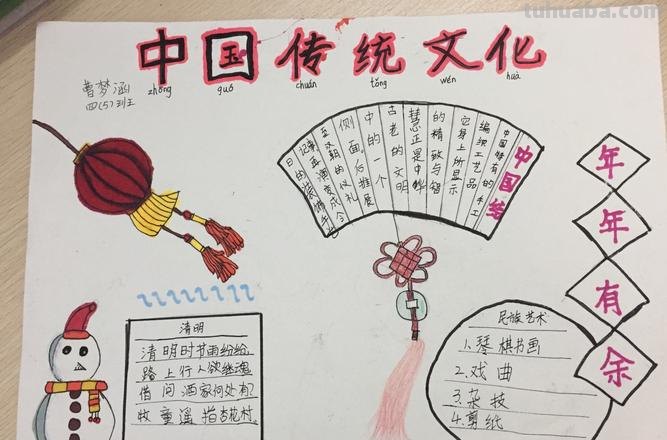 tuhuaba.com
中国传统文化
zhōng guó chuán tǒng wén huà
曹梦涵
四(5)班
中国结
中国特有的手工
编织工艺品
它身上所显示
的精致与智
慧正是中华
古老的文明
中的一个
侧面后推展
至汉朝的仪礼
演变成今
日的装饰手
年年有余
清明
清明时节雨纷纷
路上行人欲继魂
借问酒家何处有?
牧童遥指杏花村.
民族艺术
1.琴棋书画
2.戏曲
3.杂技
4.剪纸